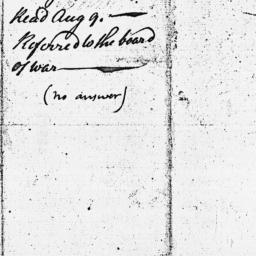 Read Aug 9. —
Referred to the board
of war —
(no answer)